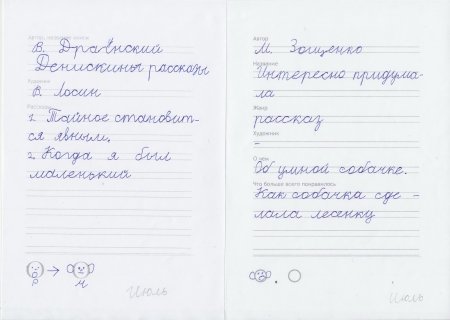 Автор, название книги
В. Драгунский
Денискины рассказы
Художник
В. Лосин
Рассказы
1. Тайное становит-
ся явным.
2. Когда я был
маленький
Р
М
Июль
Автор
М. Зощенко
Название
Интересно придума-
ла
Жанр
рассказ
Художник
-
О чем
Об умной собачке.
Что больше всего понравилось
Как собачка сде-
лала лесенку
Июль